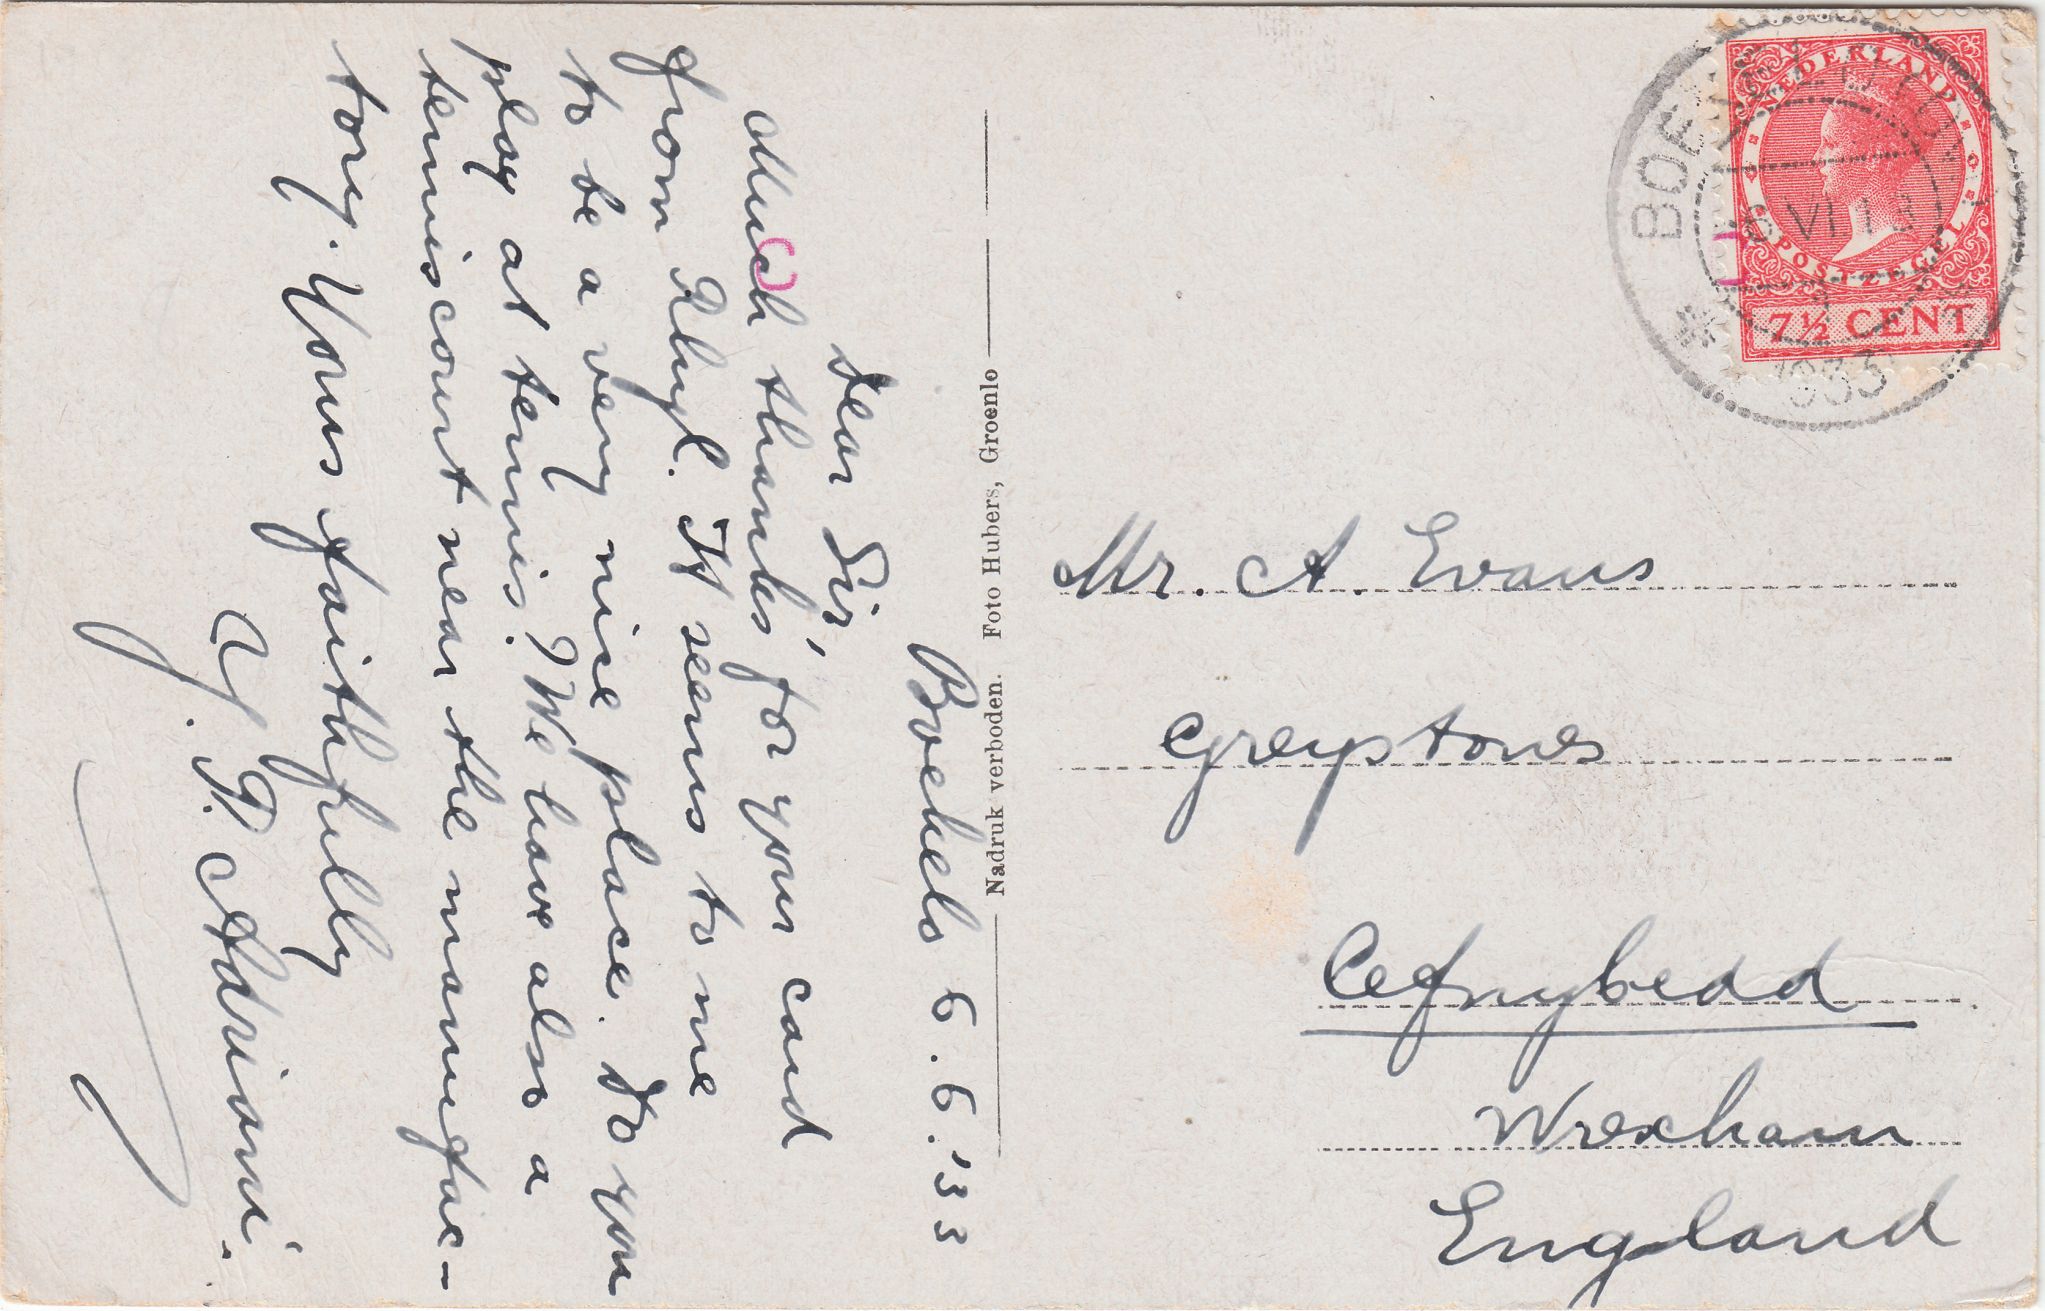 Boekelo 6.6.'33
Dear Sir,
Much thanks for your card
from Rhyl. It seems to me
to be a very nice place. Do you
play at tennis? We have also a
tenniscourt near the manufac-
tory. Yours faithfully
A. Adriani.
Nadruk verboden. Foto Hubers, Groenlo
NEDERLAND
POSTZEGEL
7½ CENT
1933
Mr. A. Evans
Greystones
Cefnybedd
Wrexham
England